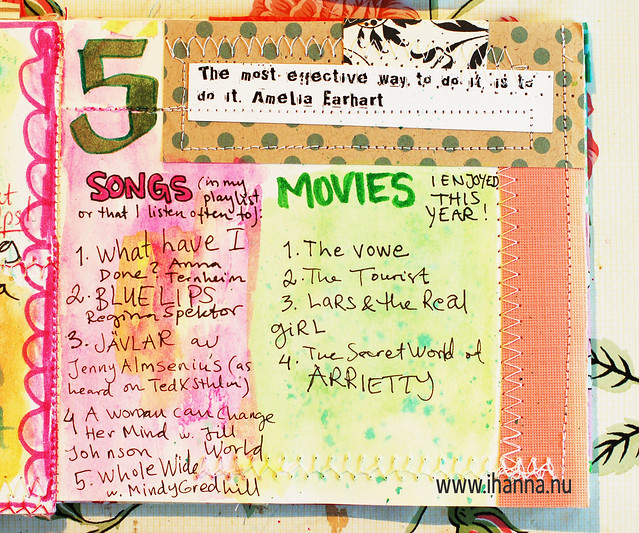 5
The most effective way to do it is to
do it. Amelia Earhart
SONGS (in my
playlist
or that I listen often to):
1. What have I
Done? Anna
Ternheim
2. BLUE LIPS
Regina Spektor
3. JÄVLAR av
Jenny Almsenius (as
heard on TedXSthlm)
4 A woman can change
Her Mind w. Jill
Johnson
5. Whole Wide World
w. Mindy Gredhill
MOVIES I ENJOYED
THIS
YEAR!
1. The vowe
2. The Tourist
3. Lars & the Real
giRL
4. The Secret World of
ARRIETTY
www.ihanna.nu